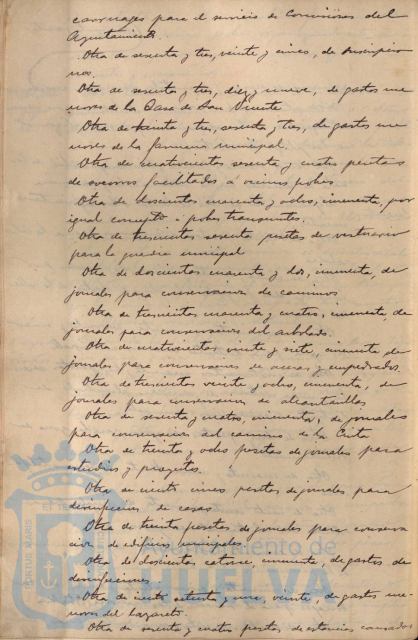 carruages para el servicio de Comisiones del
Ayuntamiento.
Otra de sesenta y tres, veinte y cinco, de suscripcio
nes.
Otra de sesenta y tres, diez y nueve, de gastos me
nores de la Casa de San Vicente
Otra de treinta y tres, sesenta y tres, de gastos me
nores de la farmacia municipal.
Otra de cuatrocientas sesenta y cuatro pesetas
de socorros facilitados á vecinos pobres
Otra de doscientas cuarenta y ocho, cincuenta, por
igual concepto á pobres transeuntes.
Otra de trescientas sesenta pesetas de vestuario
para la guardia municipal
Otra de doscientas cuarenta y dos, cincuenta, de
jornales para conservacion de caminos
Otra de trescientas cuarenta y cuatro, cincuenta, de
jornales para conservacion del arbolado.
Otra de cuatrocientas veinte y siete, cincuenta de
jornales para conservacion de aceras y empedrados.
Otra de trescientas veinte y ocho, cincuenta, de
jornales para conservacion de alcantarillas
Otra de sesenta y cuatro, cincuenta, de jornales
para conservacion del camino de la Cinta
Otra de treinta y ocho pesetas de jornales para
estudios y proyectos.
Otra de veinte cinco pesetas de jornales para
demoliciones de casas
Otra de treinta pesetas de jornales para conserva
cion de edificios municipales
Otra de doscientas catorce, cincuenta, de gastos de
demoliciones.
Otra de ciento setenta y una, veinte, de gastos me
nores del Lazareto.
Otra de sesenta y cuatro pesetas de estancias causadas
PORTUS MARIS
Ayuntamiento de
HUELVA